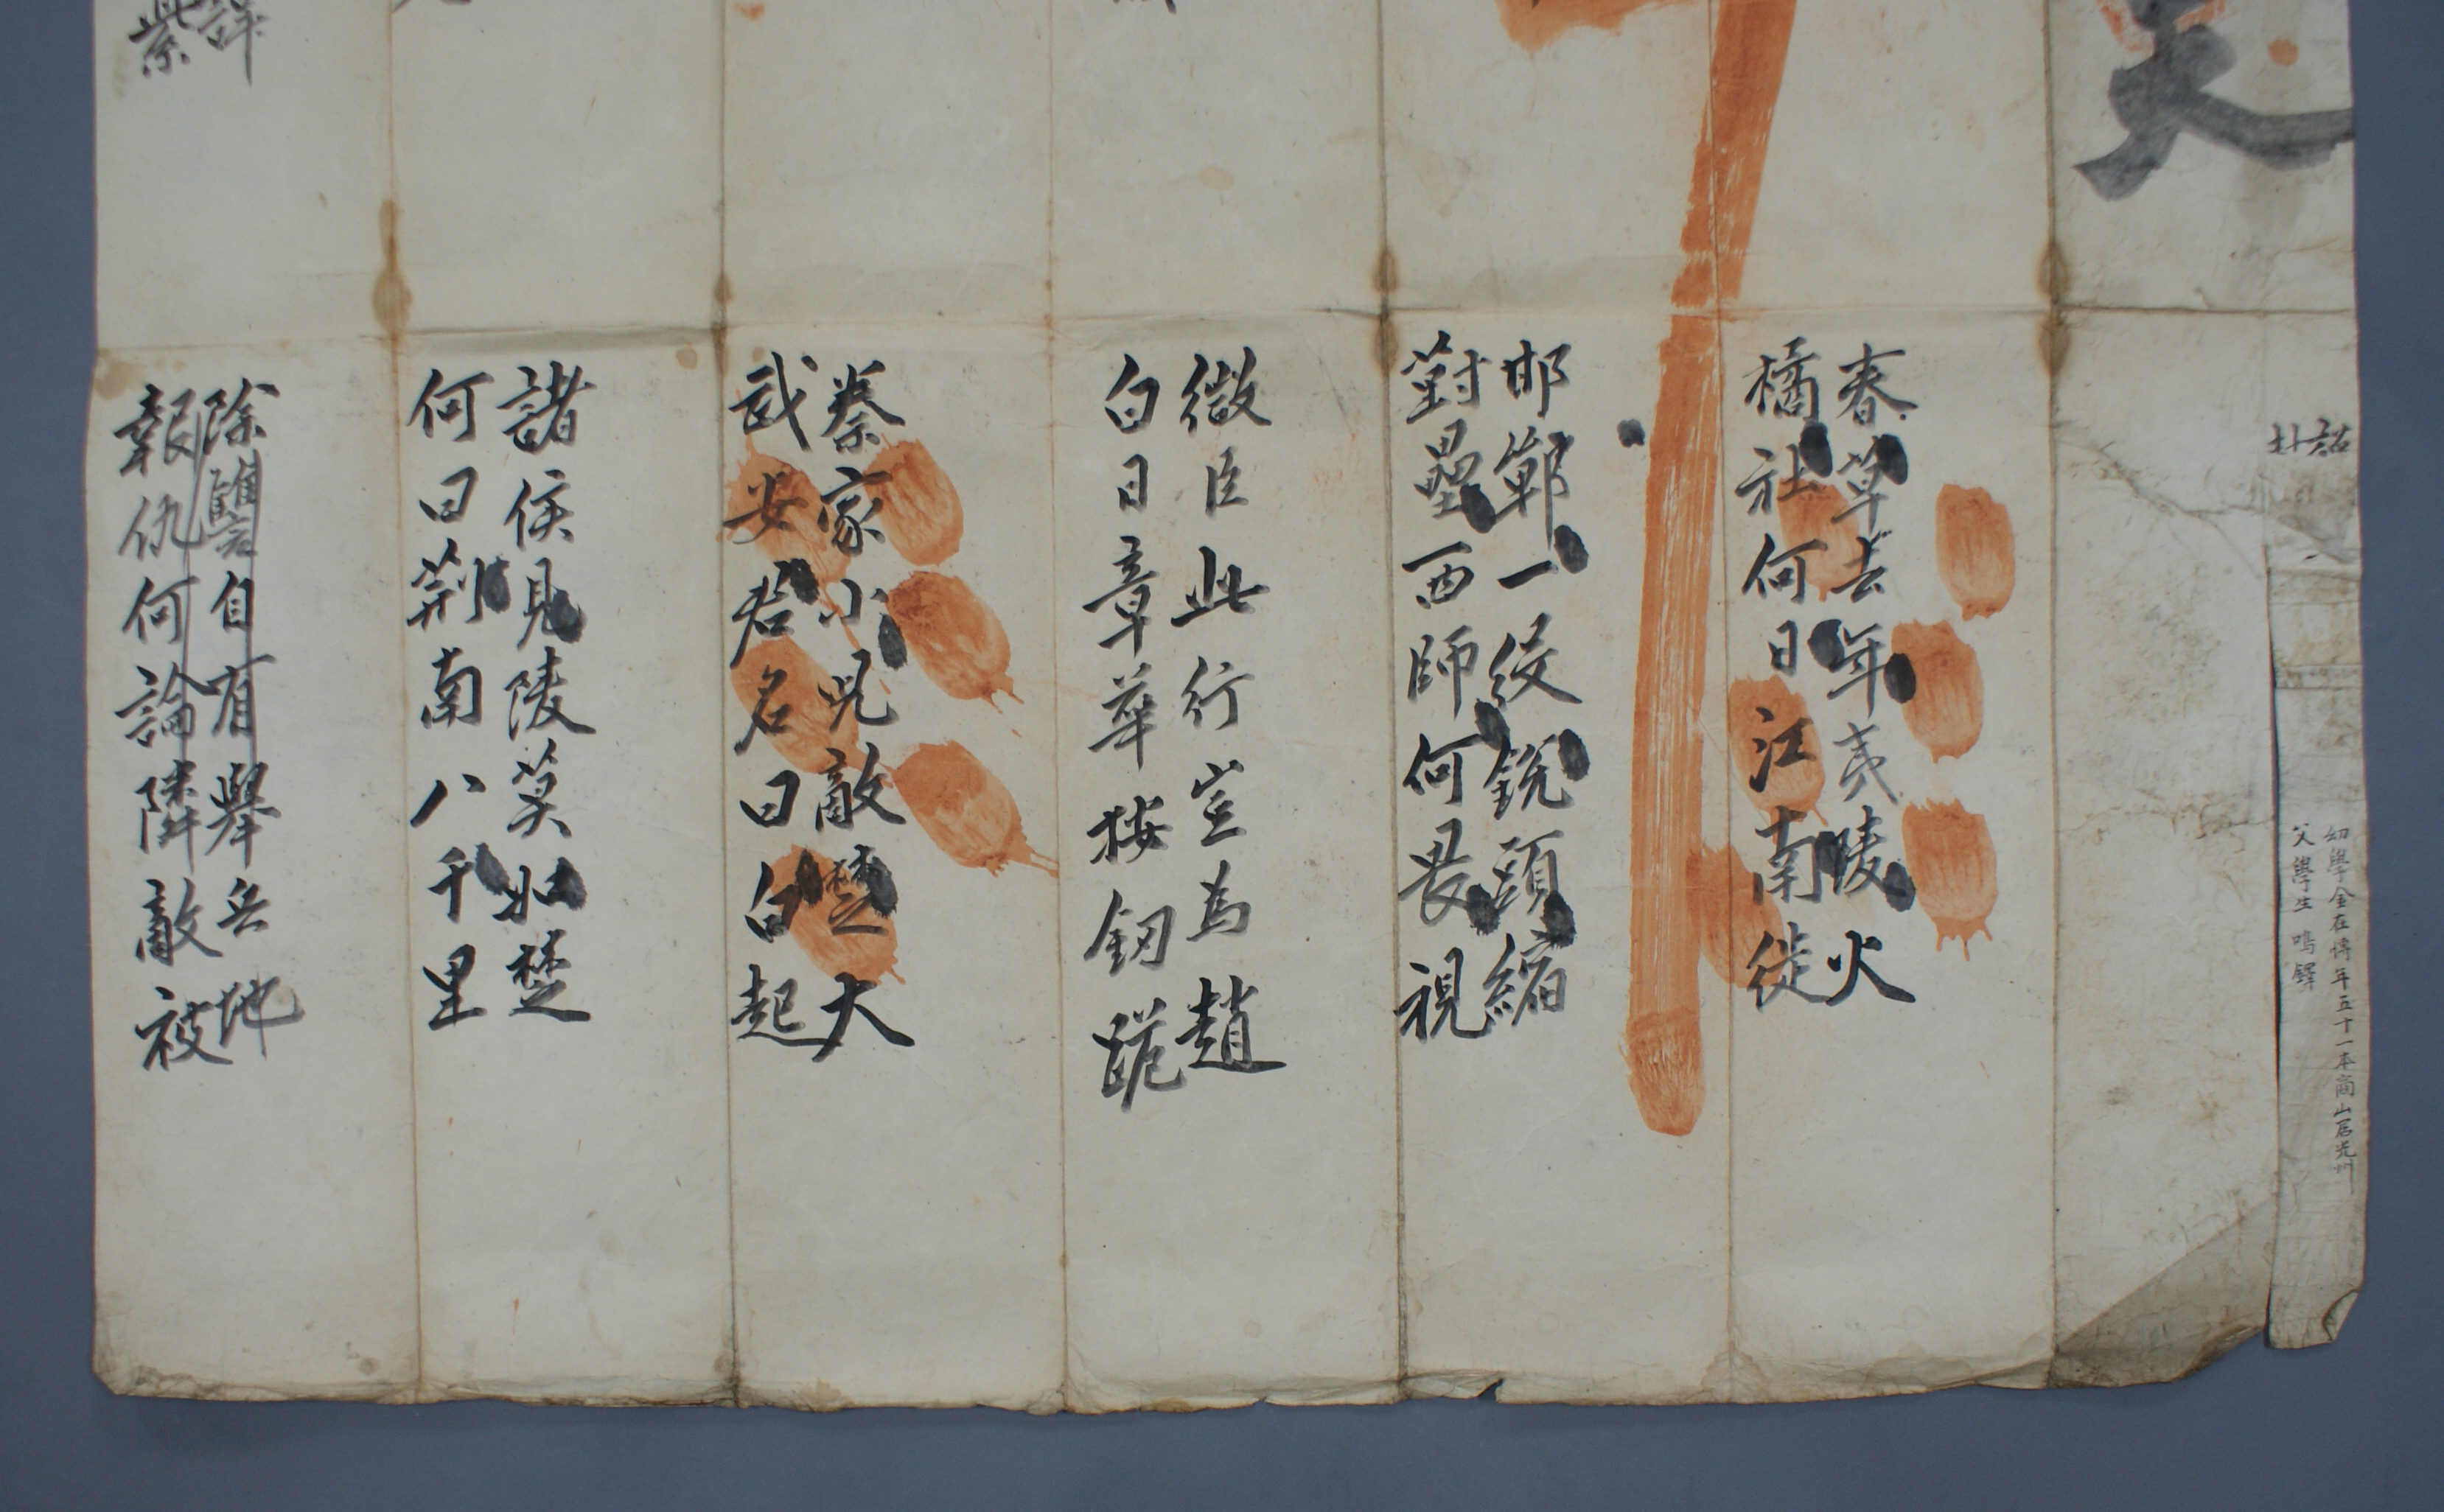 幼學金在博年五十一本商山居光州
父學生鳴鐸
春草去年夷陵火
橘社何日江南徙
邯鄲一役銳頭縮
對壘西師何畏視
微臣此行豈為趙
白日章華按釼跪
秦家小兒敵楚大
武安君名曰白起
諸侯見陵莫如楚
何曰荊南八千里
除讐自有擧兵地
報仇何論隣敵被